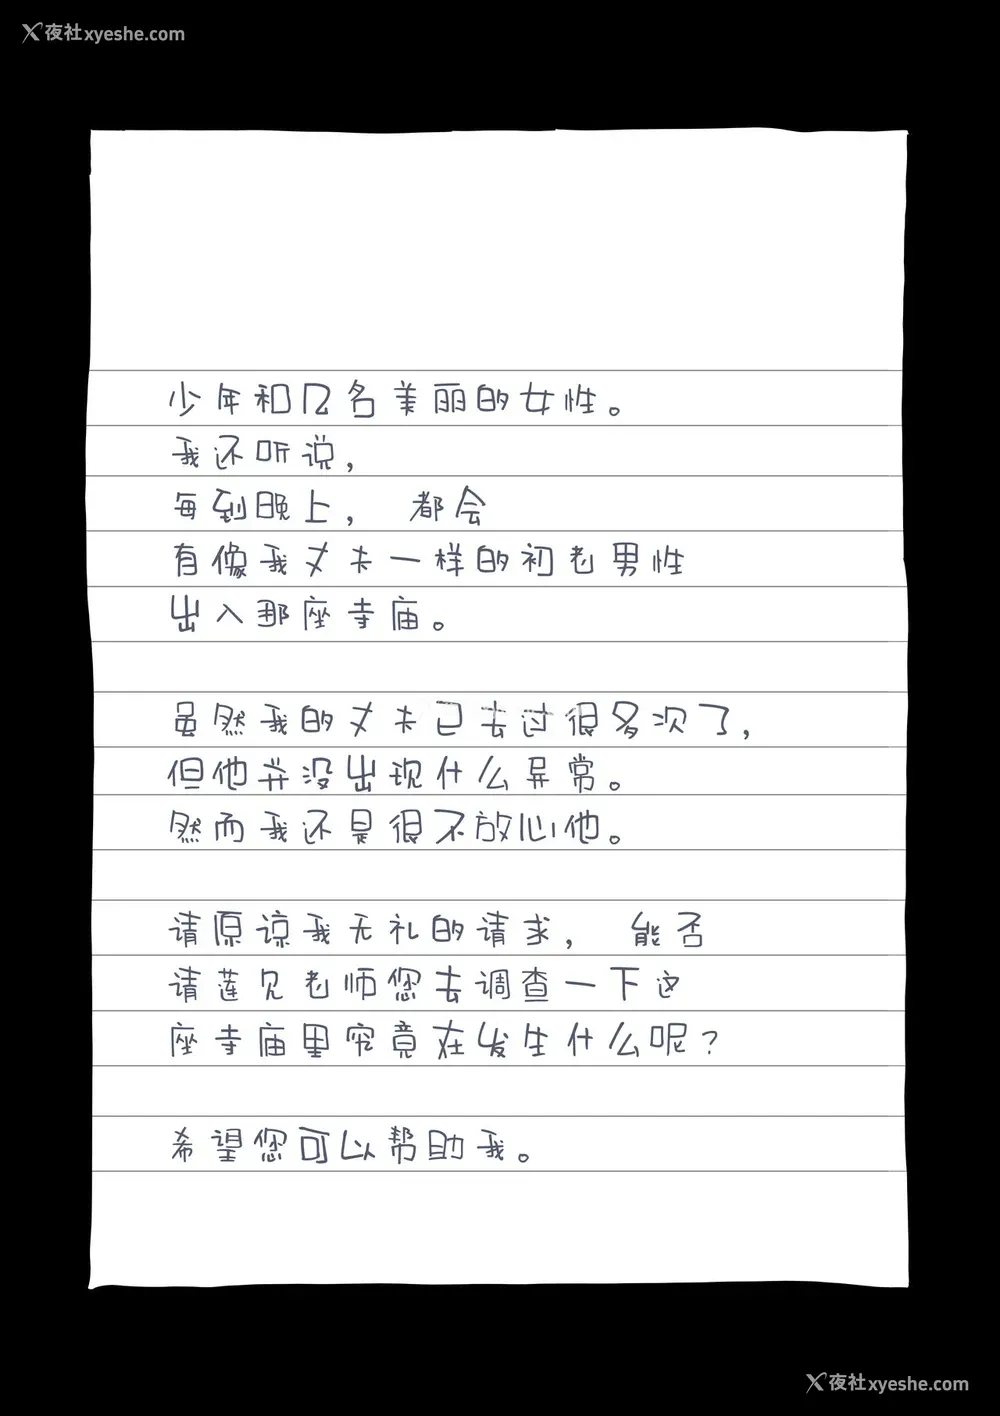 X夜社xyeshe.com
少年和几名美丽的女性。
我还听说，
每到晚上， 都会
有像我丈夫一样的初老男性
出入那座寺庙。
虽然我的丈夫已去过很多次了，
但他并没出现什么异常。
然而我还是很不放心他。
请原谅我无礼的请求， 能否
请莲见老师您去调查一下这
座寺庙里究竟在发生什么呢？
希望您可以帮助我。
X夜社xyeshe.com